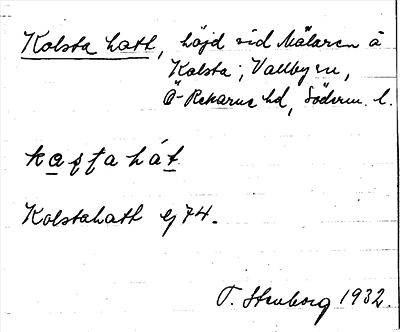 Kolsta hatt, höjd vid Mälaren å
Kolsta; Vallby sn,
Ö-Rekarne hd, Söderm. l.
Kolstahatt ej 74.
T. Stenborg 1932.